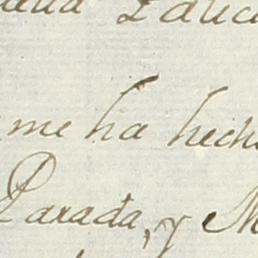 me ha hech
Parada, y M